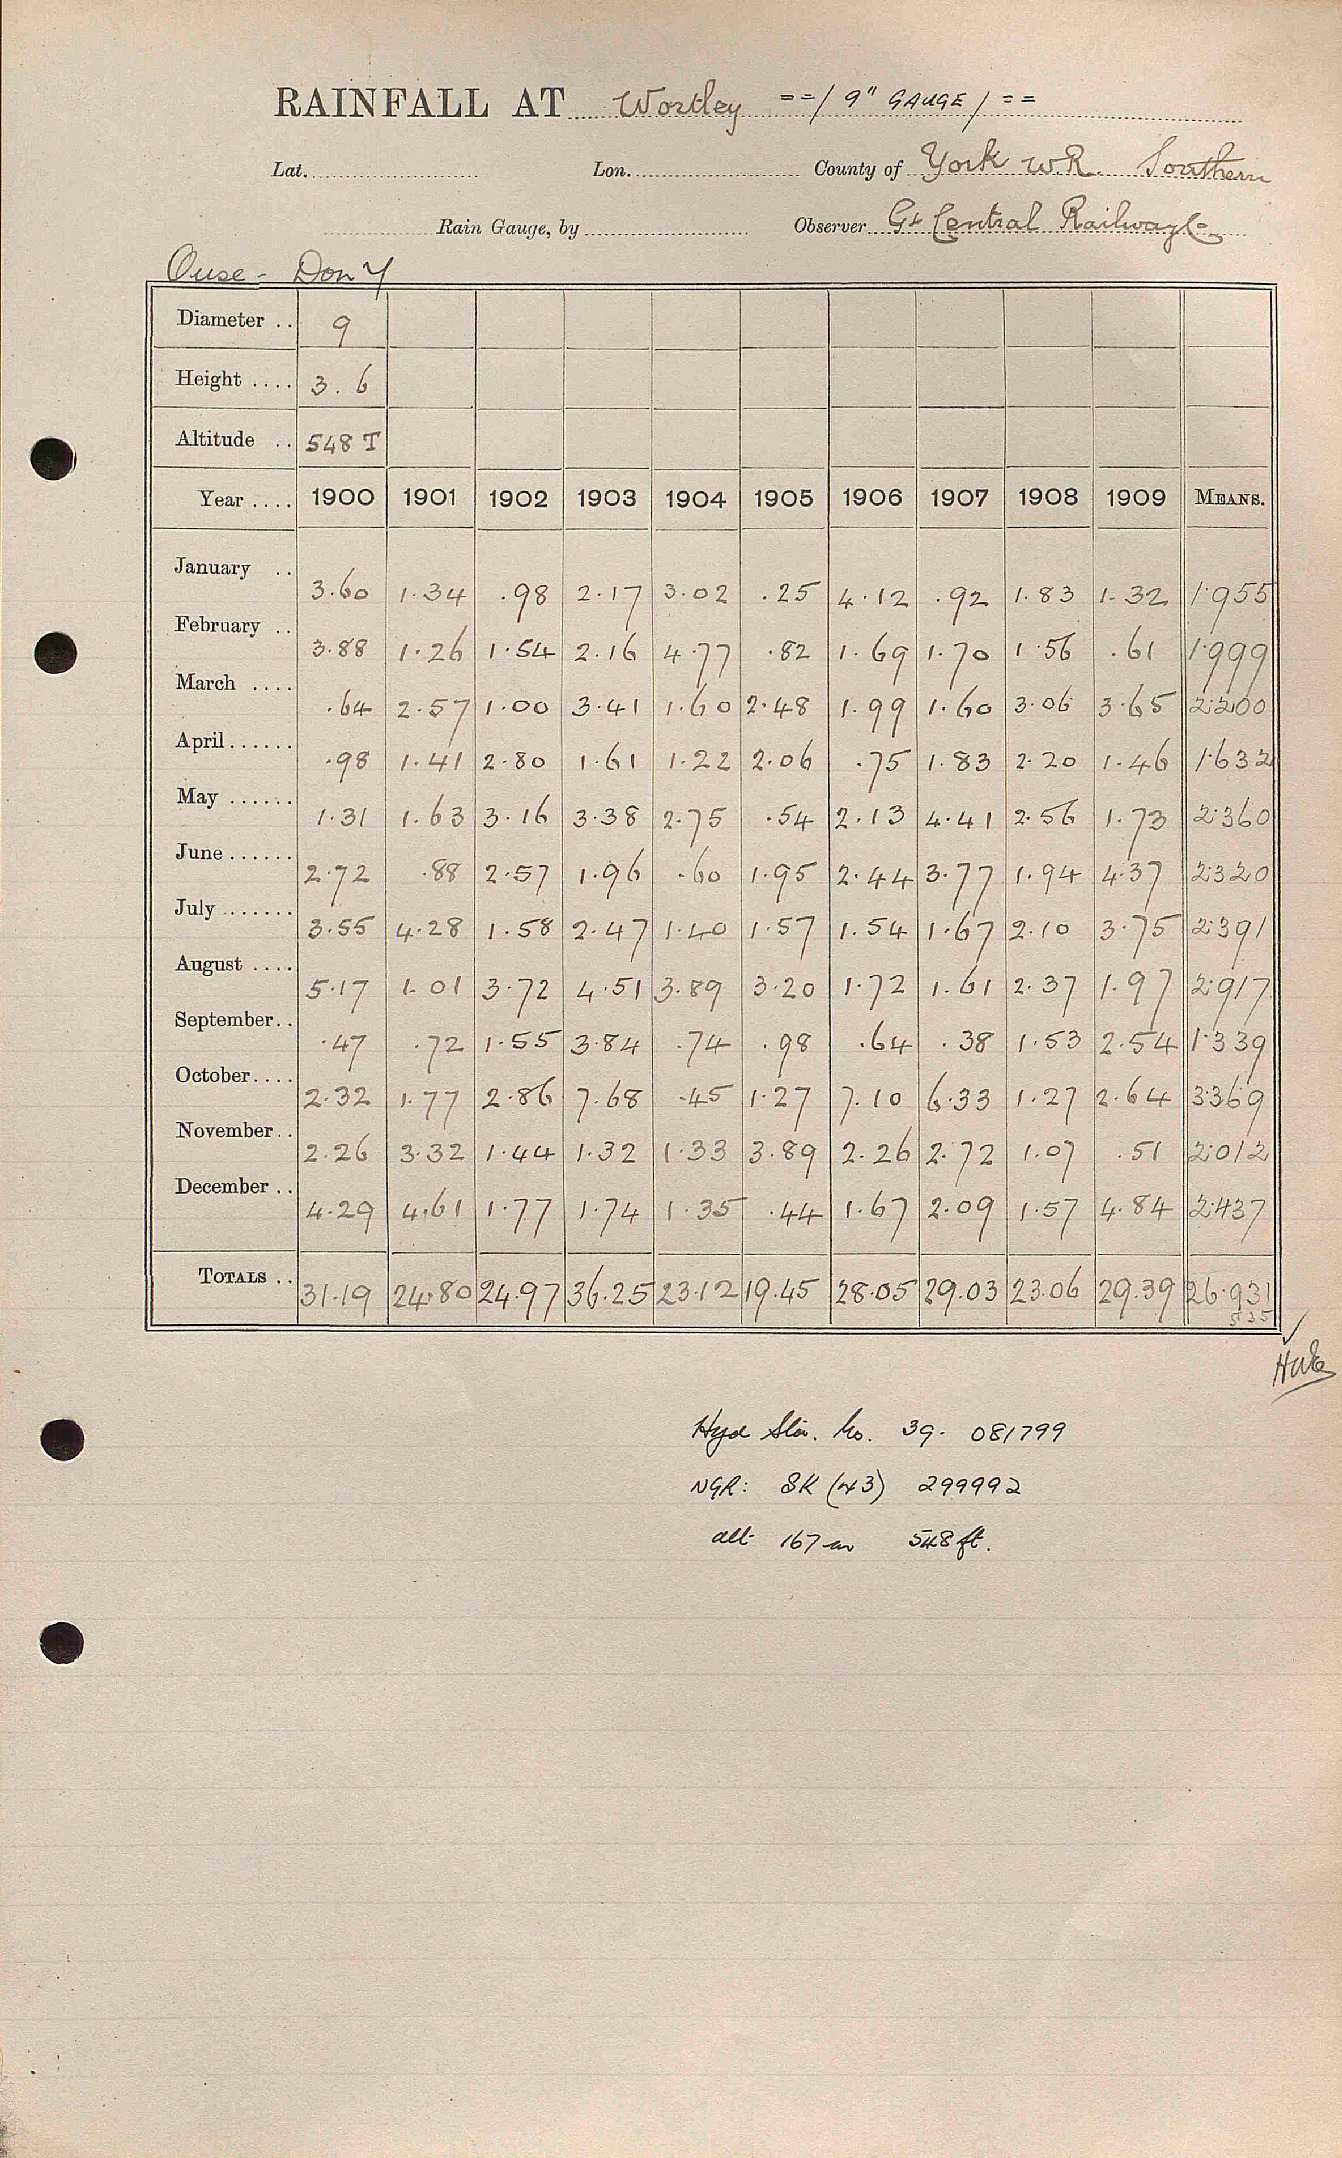 RAINFALL AT Wortley == / 9" GAUGE / ==
Lat. Lon. County of York W.R. Southern
Rain Gauge, by Observer Gt Central Railway Co
Ouse - Don Y
Diameter .. 9
Height .... 3.6
Altitude .. 548 T
Year .... 1900 1901 1902 1903 1904 1905 1906 1907 1908 1909 MEANS.
January .. 3.60 1.34 .98 2.17 3.02 .25 4.12 .92 1.83 1.32 1.955
February .. 3.88 1.26 1.54 2.16 4.77 .82 1.69 1.70 1.56 .61 1.999
March .... .64 2.57 1.00 3.41 1.60 2.48 1.99 1.60 3.06 3.65 2.200
April...... .98 1.41 2.80 1.61 1.22 2.06 .75 1.83 2.20 1.46 1.632
May ...... 1.31 1.63 3.16 3.38 2.75 .54 2.13 4.41 2.56 1.73 2.360
June...... 2.72 .88 2.57 1.96 .60 1.95 2.44 3.77 1.94 4.37 2.320
July....... 3.55 4.28 1.58 2.47 1.40 1.57 1.54 1.67 2.10 3.75 2.391
August .... 5.17 1.01 3.72 4.51 3.89 3.20 1.72 1.61 2.37 1.97 2.917
September.. .47 .72 1.55 3.84 .74 .98 .64 .38 1.53 2.54 1.339
October.... 2.32 1.77 2.86 7.68 .45 1.27 7.10 6.33 1.27 2.64 3.369
November.. 2.26 3.32 1.44 1.32 1.33 3.89 2.26 2.72 1.07 .51 2.012
December .. 4.29 4.61 1.77 1.74 1.35 .44 1.67 2.09 1.57 4.84 2.437
TOTALS .. 31.19 24.80 24.97 36.25 23.12 19.45 28.05 29.03 23.06 29.39 26.931
Hyd Stn. No. 39. 081799
NGR: SK (43) 299992
alt 167 m 548 ft.